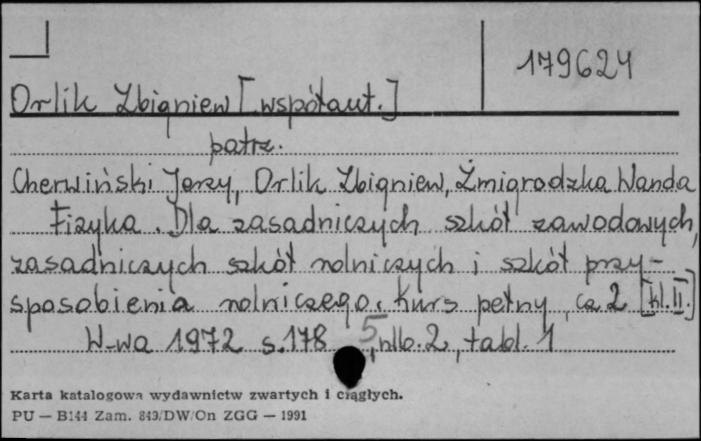 179624
Orlik Zbigniew [współaut.]
patrz.
Cherwiński Jerzy, Orlik Zbigniew, Żmigrodzka Wanda
Fizyka. Dla zasadniczych szkół zawodowych,
zasadniczych szkół rolniczych i szkół przy-
sposobienia rolniczego. Kurs pełny, cz 2 [kl. II.]
W-wa 1972 s. 178 5, nlb. 2, tabl. 1
Karta katalogowa wydawnictw zwartych i ciągłych.
PU — B144 Zam. 849/DW/On ZGG — 1991